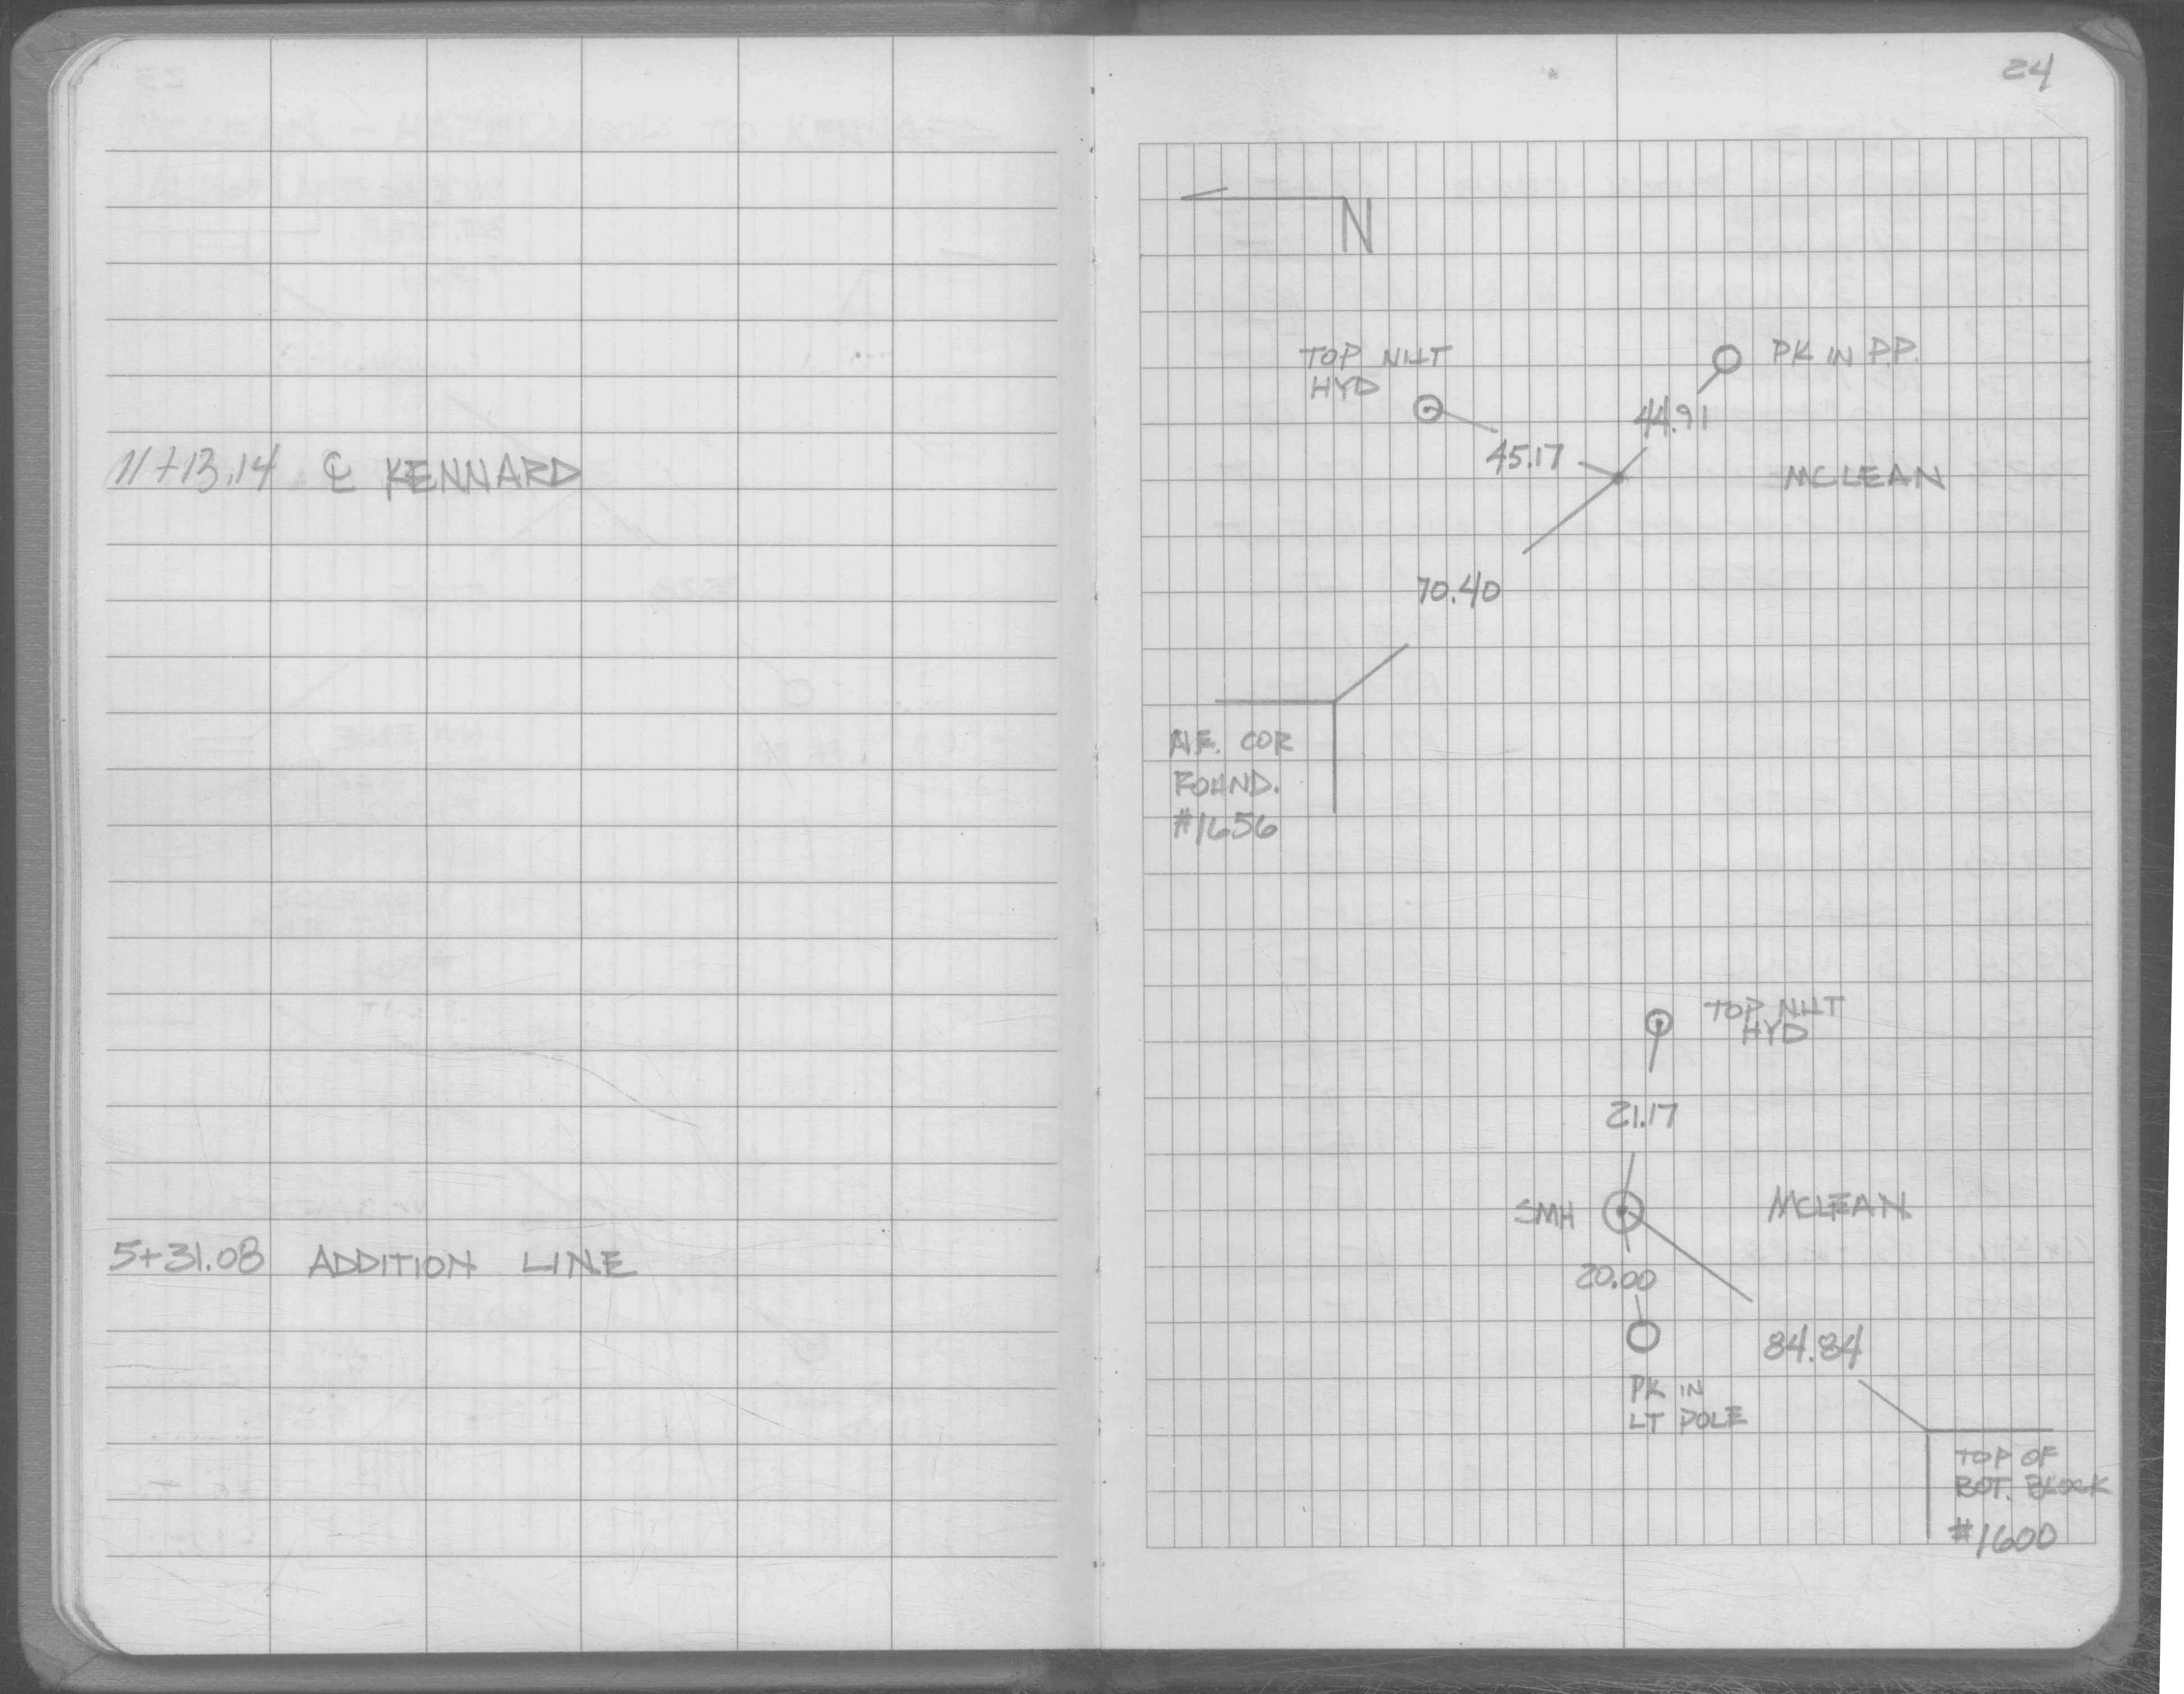 24
N
TOP NUT
HYD
PK IN P.P.
44.91
45.17
11+13.14 ℄ KENNARD
MCLEAN
70.40
N.E. COR
FOUND.
#1656
TOP NUT
HYD
21.17
SMH
MCLEAN
5+31.08 ADDITION LINE
20.00
84.84
PK IN
LT POLE
TOP OF
BOT. BLOCK
#1600